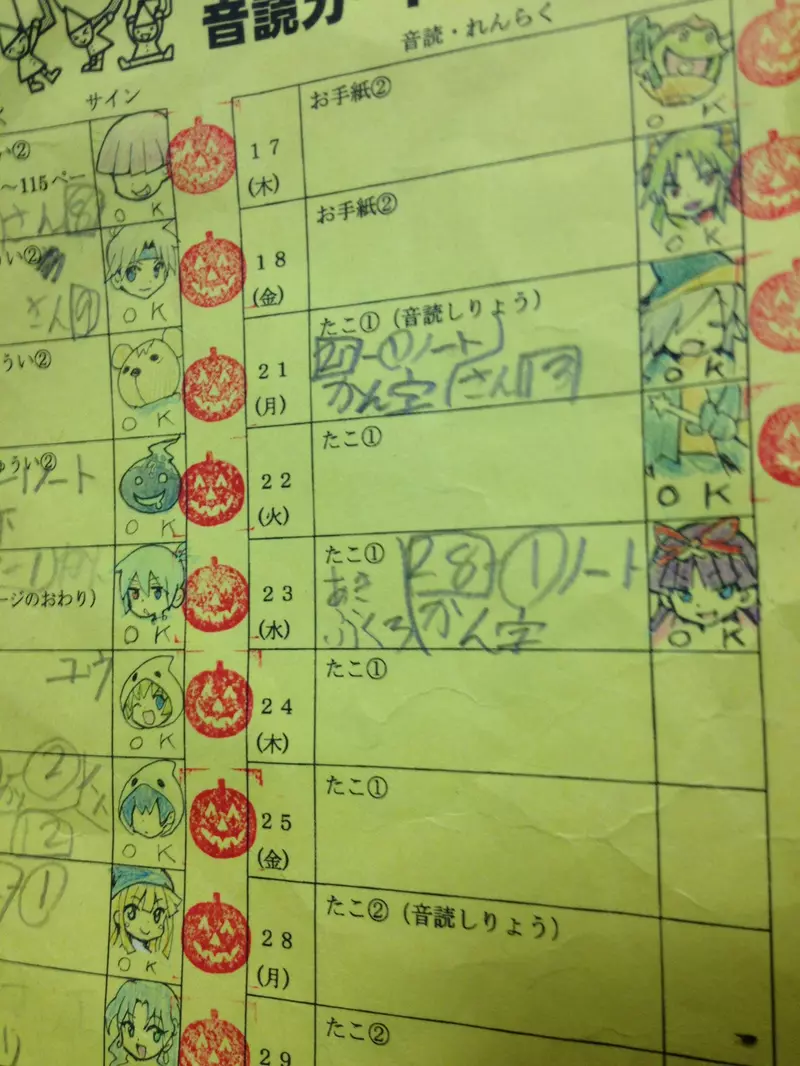 音読カード
音読・れんらく
サイン
い②
〜115ペー
さん⑧
OK
17
(木)
お手紙②
OK
うい②
さん⑨
OK
18
(金)
お手紙②
OK
うい②
OK
21
(月)
たこ①(音読しりょう)
27-①ノート
かん字 さん13
OK
ゅうい②
ノート
OK
22
(火)
たこ①
OK
ージのおわり)
OK
23
(水)
たこ①
あき
ぶくろ
28-①ノート
かん字
OK
ユウ
OK
24
(木)
たこ①
②
12
OK
25
(金)
たこ①
①
OK
28
(月)
たこ②(音読しりょう)
29
たこ②